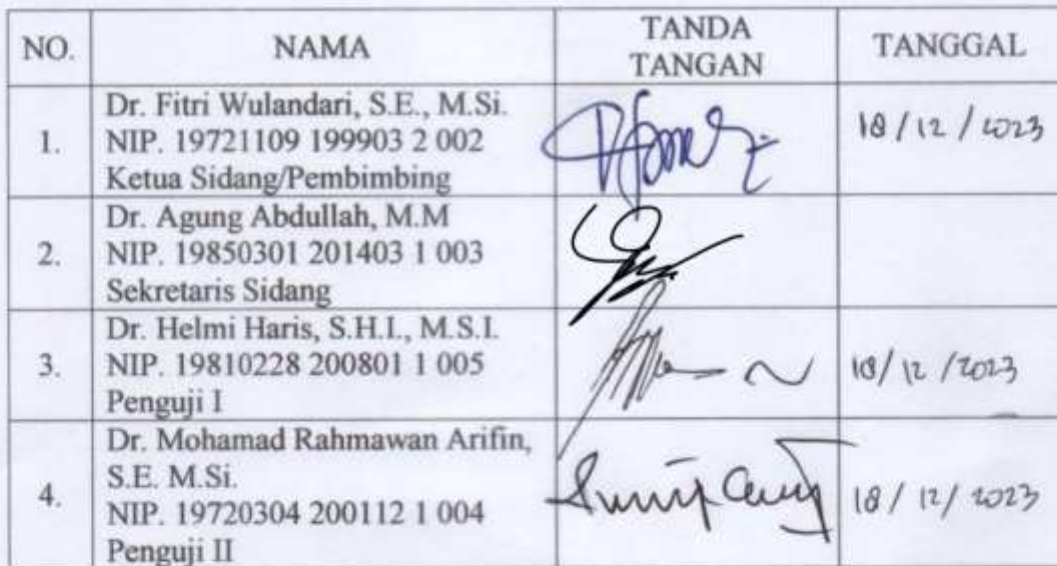 NO. NAMA TANDA TANGAN TANGGAL
1. Dr. Fitri Wulandari, S.E., M.Si.
NIP. 19721109 199903 2 002
Ketua Sidang/Pembimbing
18/12/2023
2. Dr. Agung Abdullah, M.M
NIP. 19850301 201403 1 003
Sekretaris Sidang
3. Dr. Helmi Haris, S.H.I., M.S.I.
NIP. 19810228 200801 1 005
Penguji I
18/12/2023
4. Dr. Mohamad Rahmawan Arifin,
S.E. M.Si.
NIP. 19720304 200112 1 004
Penguji II
18/12/2023